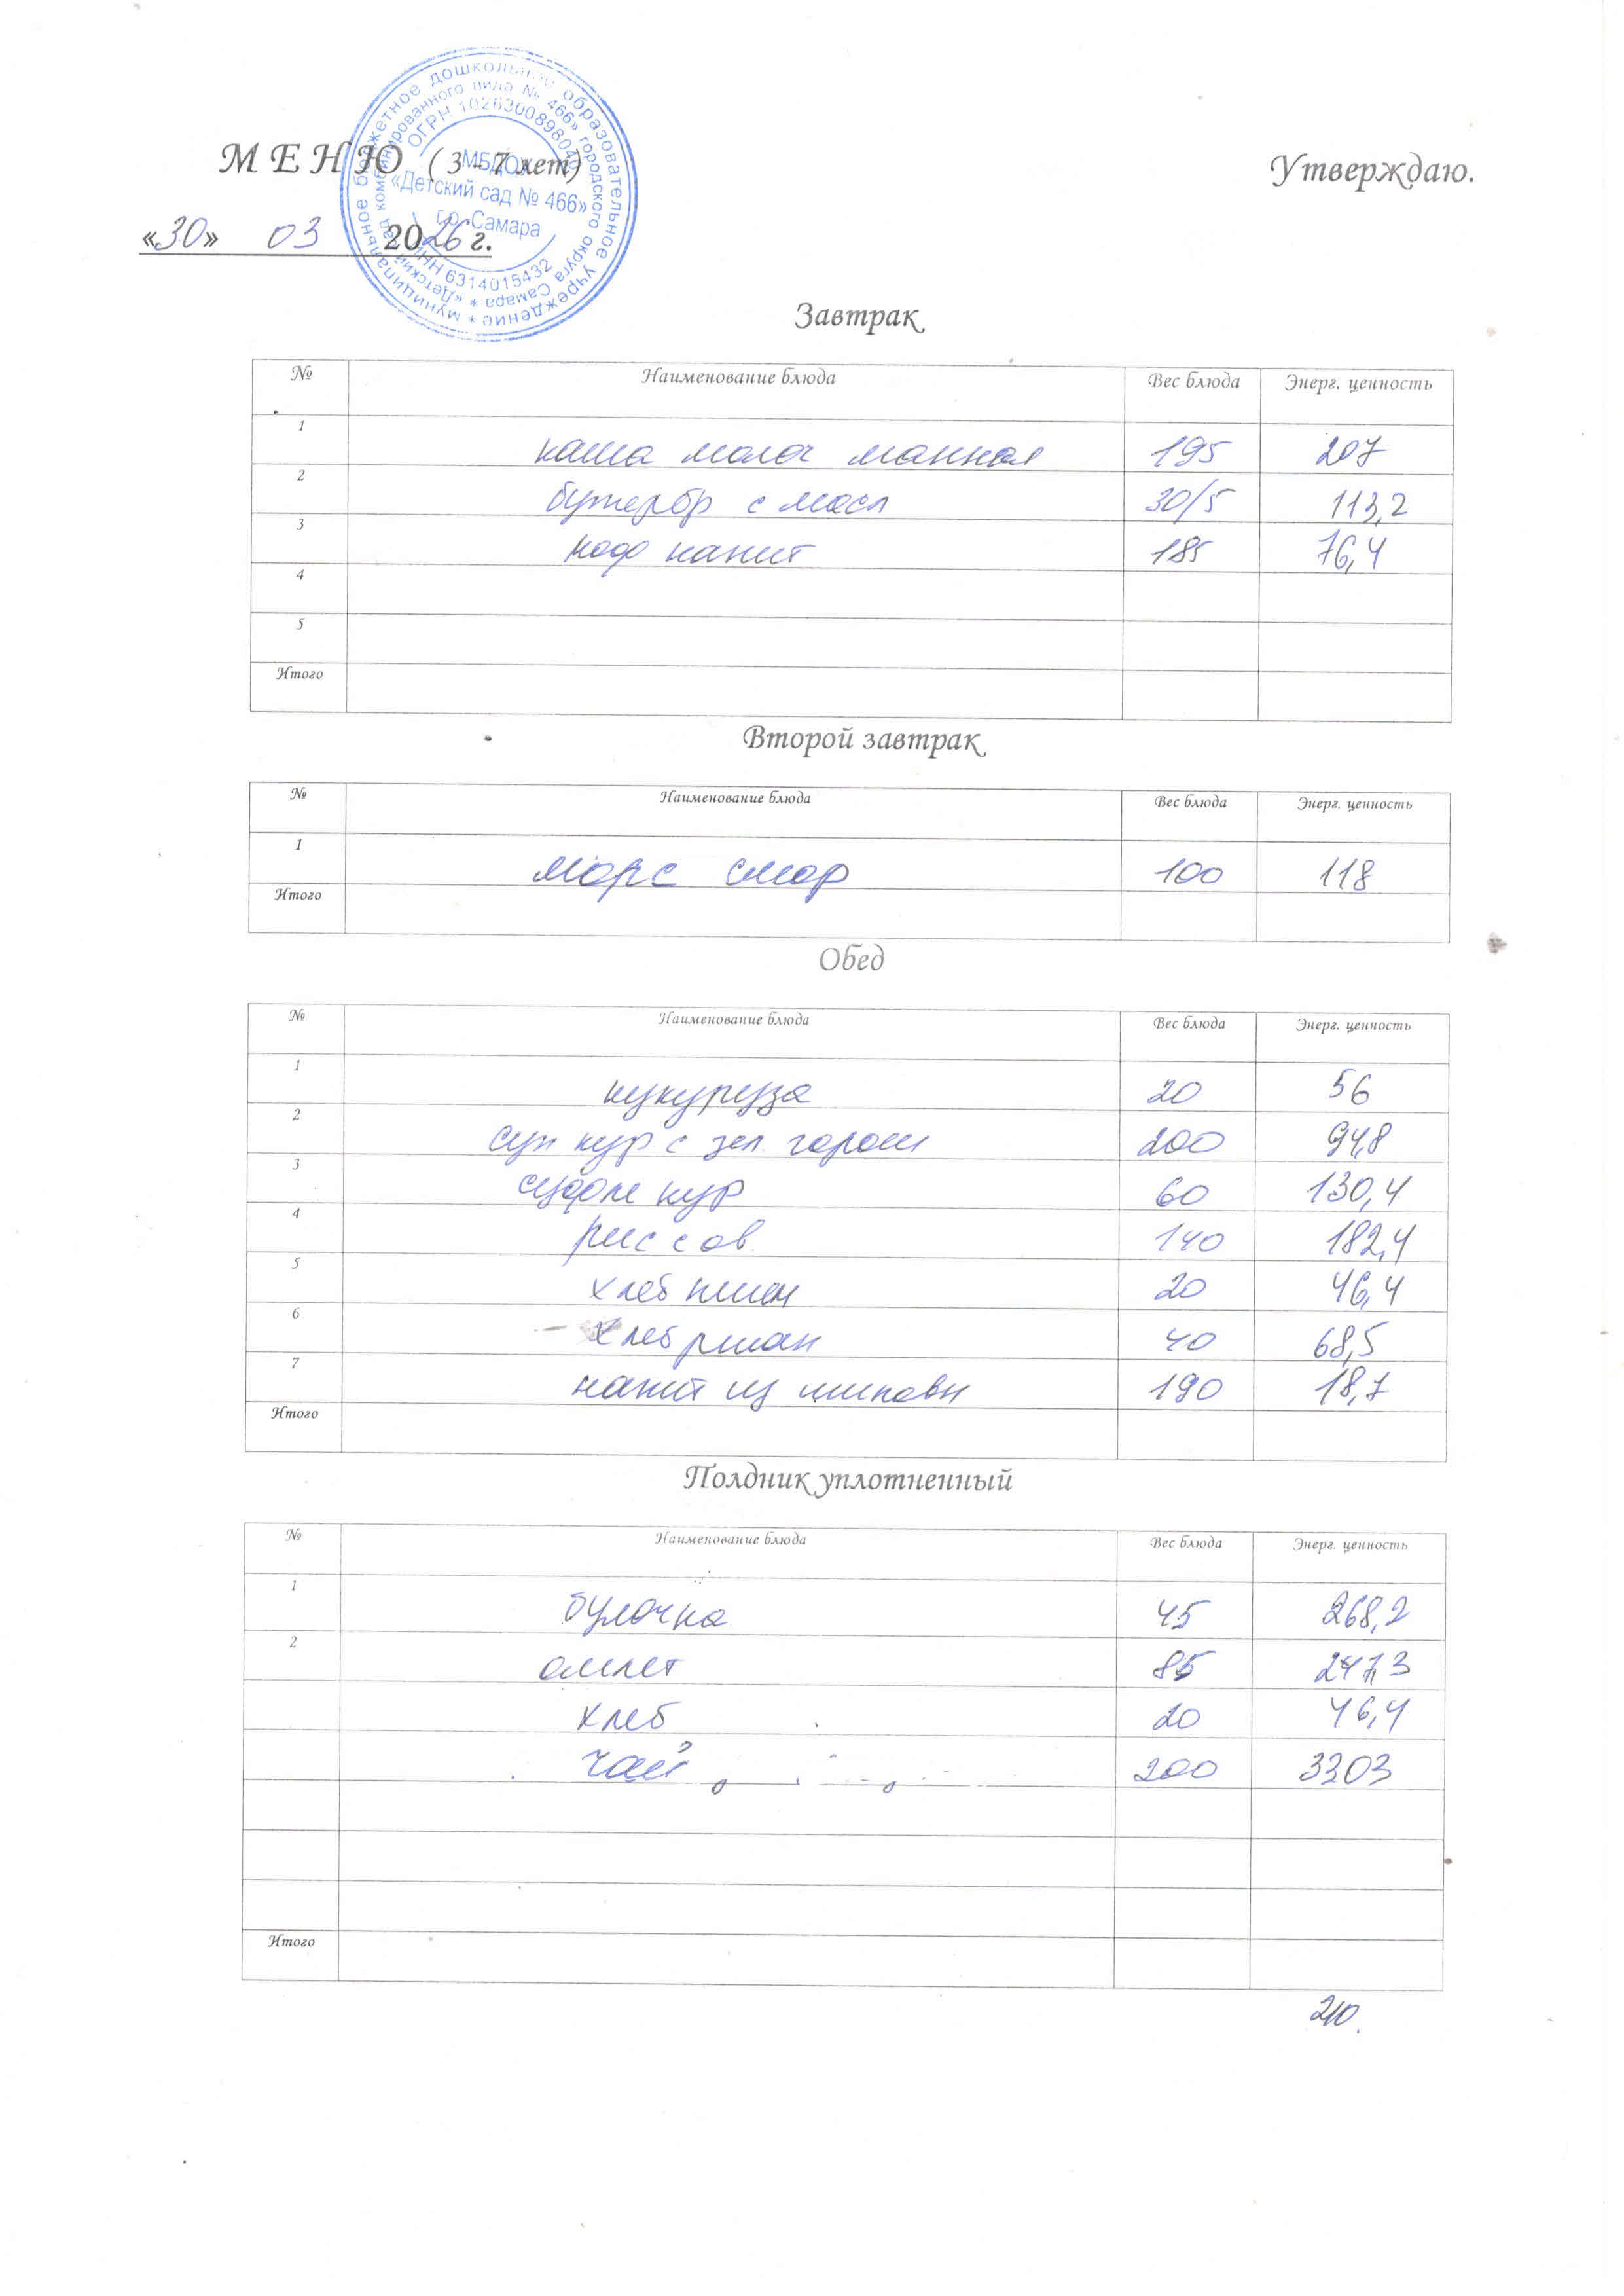 муниципальное бюджетное дошкольное образовательное учреждение *
«Детский сад комбинированного вида № 466» городского округа Самара *
ОГРН 1026300898049
МБДОУ
«Детский сад № 466»
г.о. Самара
ИНН 6314015432
М Е Н Ю ( 3 - 7 лет) Утверждаю.
«30» 03 2026 г.
Завтрак
№ Наименование блюда Вес блюда Энерг. ценность
1 каша молоч манная 195 207
2 бутербр с масл 30/5 113,2
3 коф напит 185 76,4
4
5
Итого
Второй завтрак
№ Наименование блюда Вес блюда Энерг. ценность
1 морс смор 100 118
Итого
Обед
№ Наименование блюда Вес блюда Энерг. ценность
1 кукуруза 20 56
2 суп кур с зел горош 200 94,8
3 суфле кур 60 130,4
4 рис с ов 140 182,4
5 хлеб пшен 20 46,4
6 хлеб ржан 40 68,5
7 напит из шиповн 190 18,7
Итого
Полдник уплотненный
№ Наименование блюда Вес блюда Энерг. ценность
1 булочка 45 268,2
2 омлет 85 247,3
хлеб 20 46,4
чай 200 3303
Итого
210.